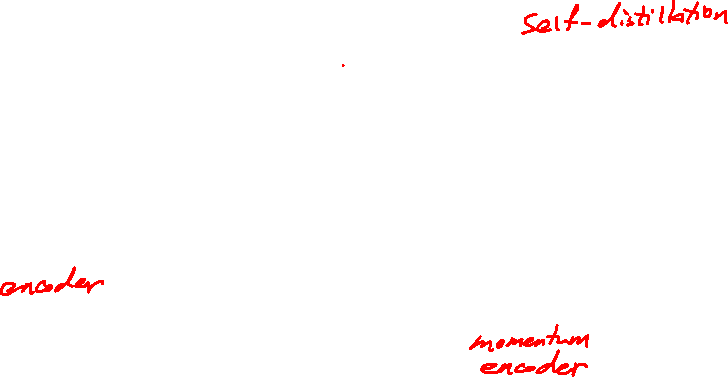 Self-distillation
encoder
momentum
encoder